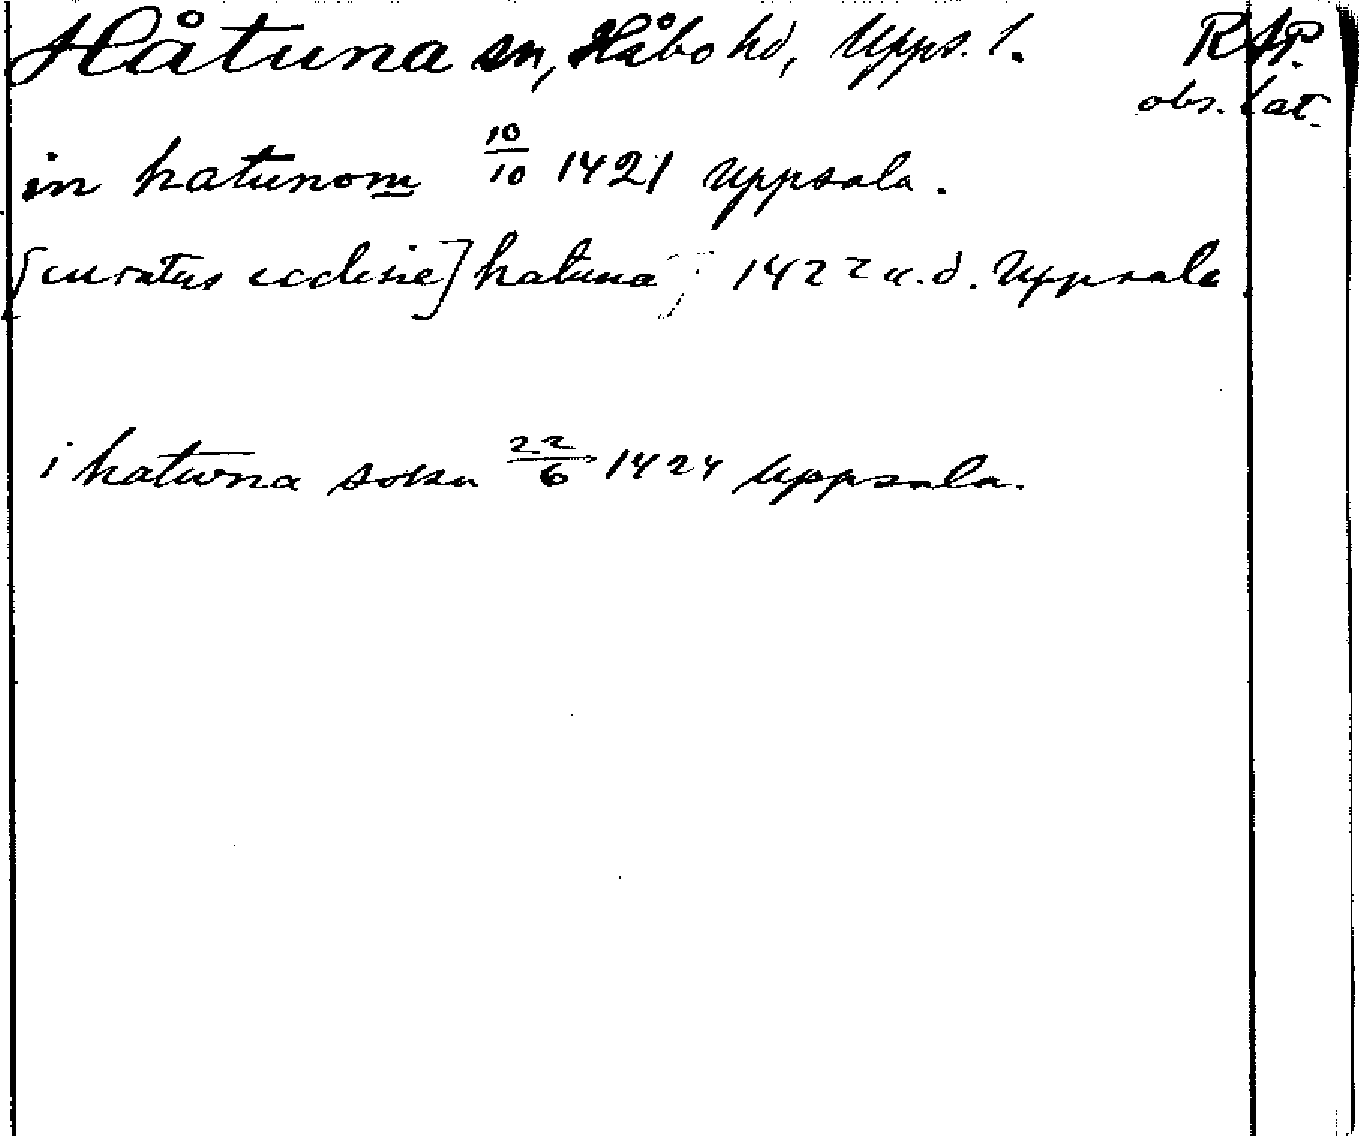 Håtuna sn, Håbo hd, Upps. l. RAP.
obs. lat.
in hatunom 10/10 1421 Uppsala.
[curatus ecclesie] hatuna; 1422 u.d. Uppsala
i hatuna sokn 22/6 1424 Uppsala.